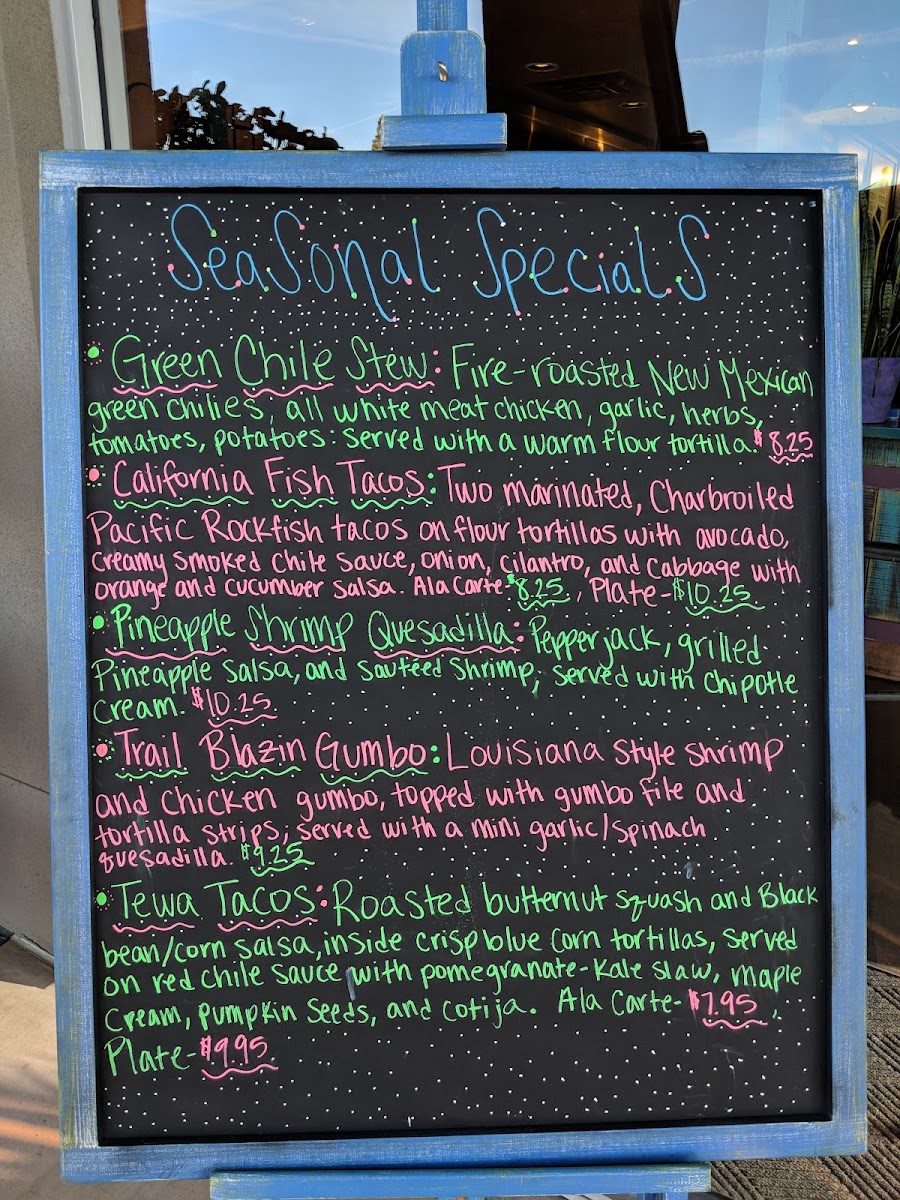 Seasonal Specials
• Green Chile Stew: Fire-roasted New Mexican
green chilies, all white meat chicken, garlic, herbs,
tomatoes, potatoes: served with a warm flour tortilla. $8.25
• California Fish Tacos: Two marinated, Charbroiled
Pacific Rockfish tacos on flour tortillas with avocado,
creamy smoked chile sauce, onion, cilantro, and cabbage with
orange and cucumber salsa. Ala Carte-$8.25, Plate-$10.25
• Pineapple Shrimp Quesadilla: Pepperjack, grilled
Pineapple salsa, and sautéed shrimp, served with chipotle
cream. $10.25
• Trail Blazin Gumbo: Louisiana style shrimp
and chicken gumbo, topped with gumbo file and
tortilla strips, served with a mini garlic/spinach
quesadilla. $9.25
• Tewa Tacos: Roasted butternut squash and Black
bean/corn salsa, inside crisp blue corn tortillas, served
on red chile sauce with pomegranate-kale slaw, maple
cream, pumpkin seeds, and cotija. Ala Carte-$7.95,
Plate-$9.95